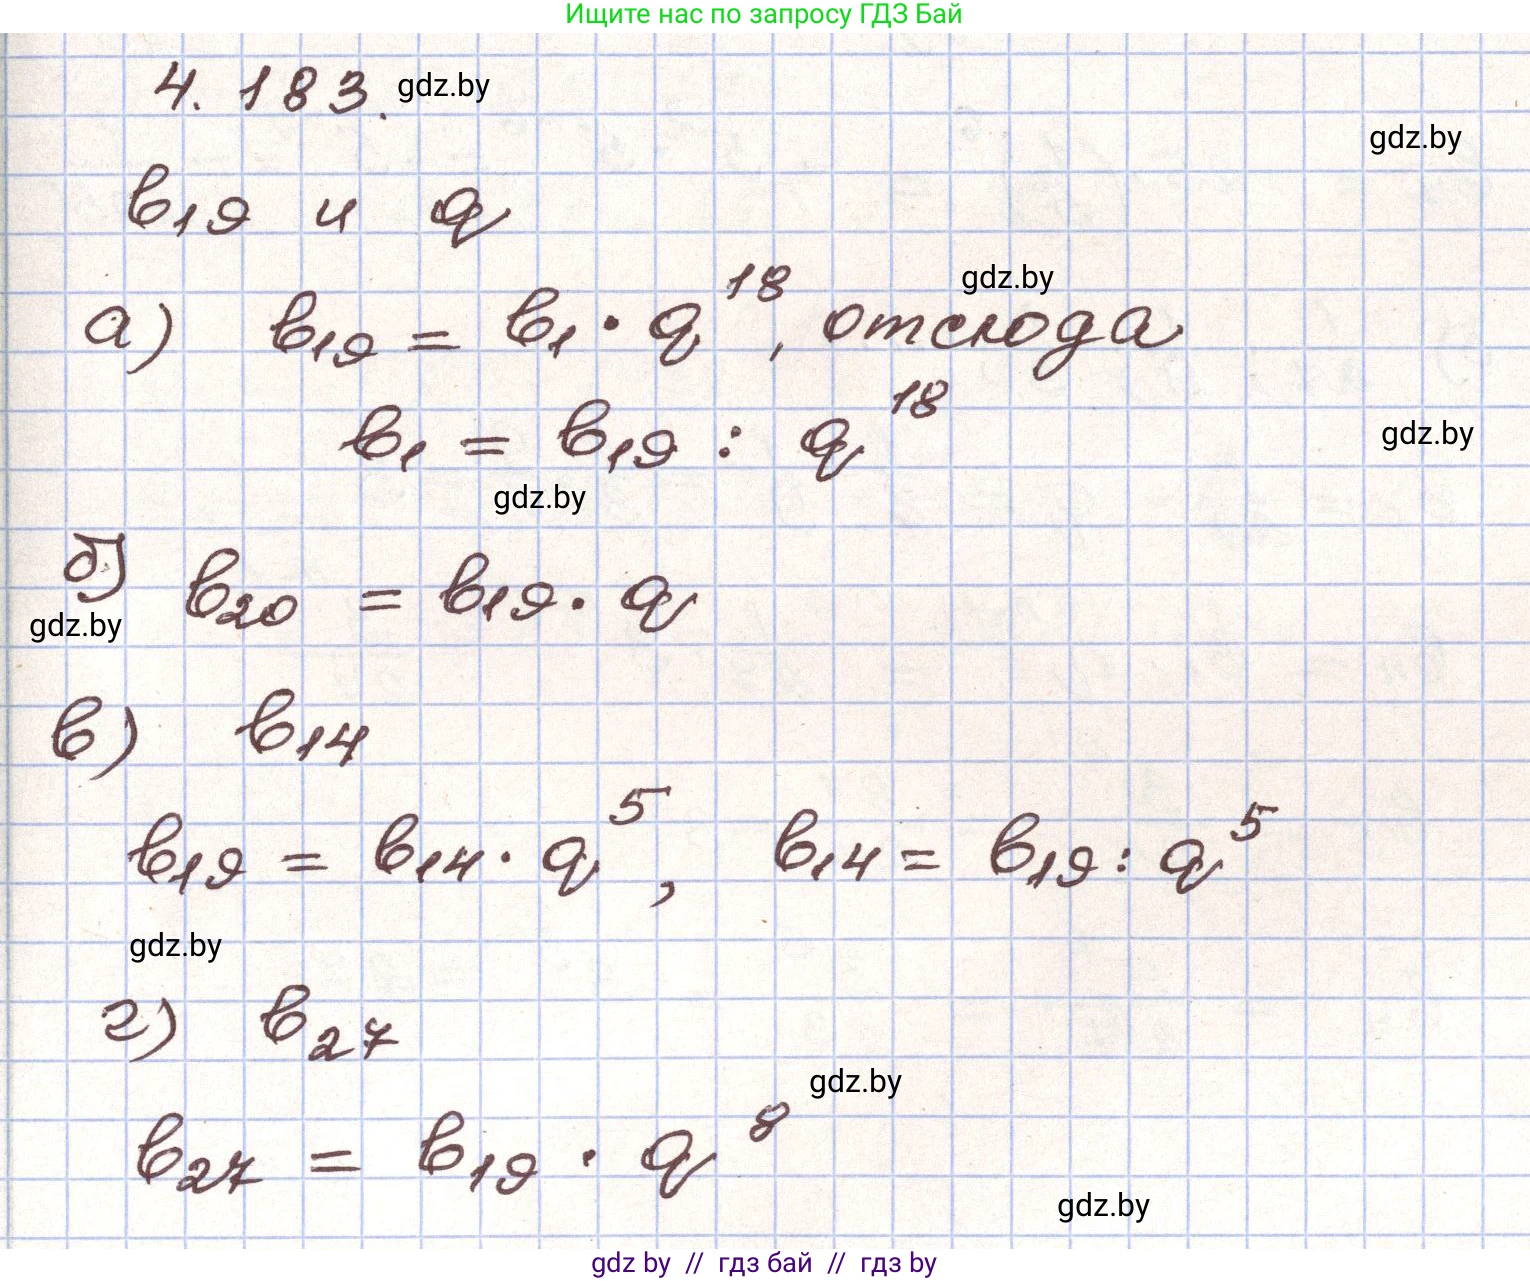 Ищите нас по запросу ГДЗ Бай
4.183. gdz.by
gdz.by
b₁₉ и q
gdz.by
а) b₁₉ = b₁ · q¹⁸, отсюда
b₁ = b₁₉ : q¹⁸
gdz.by
gdz.by
б) b₂₀ = b₁₉ · q
gdz.by
в) b₁₄
b₁₉ = b₁₄ · q⁵, b₁₄ = b₁₉ : q⁵
gdz.by
г) b₂₇
gdz.by
b₂₇ = b₁₉ · q⁸
gdz.by
gdz by // гдз бай // гдз by